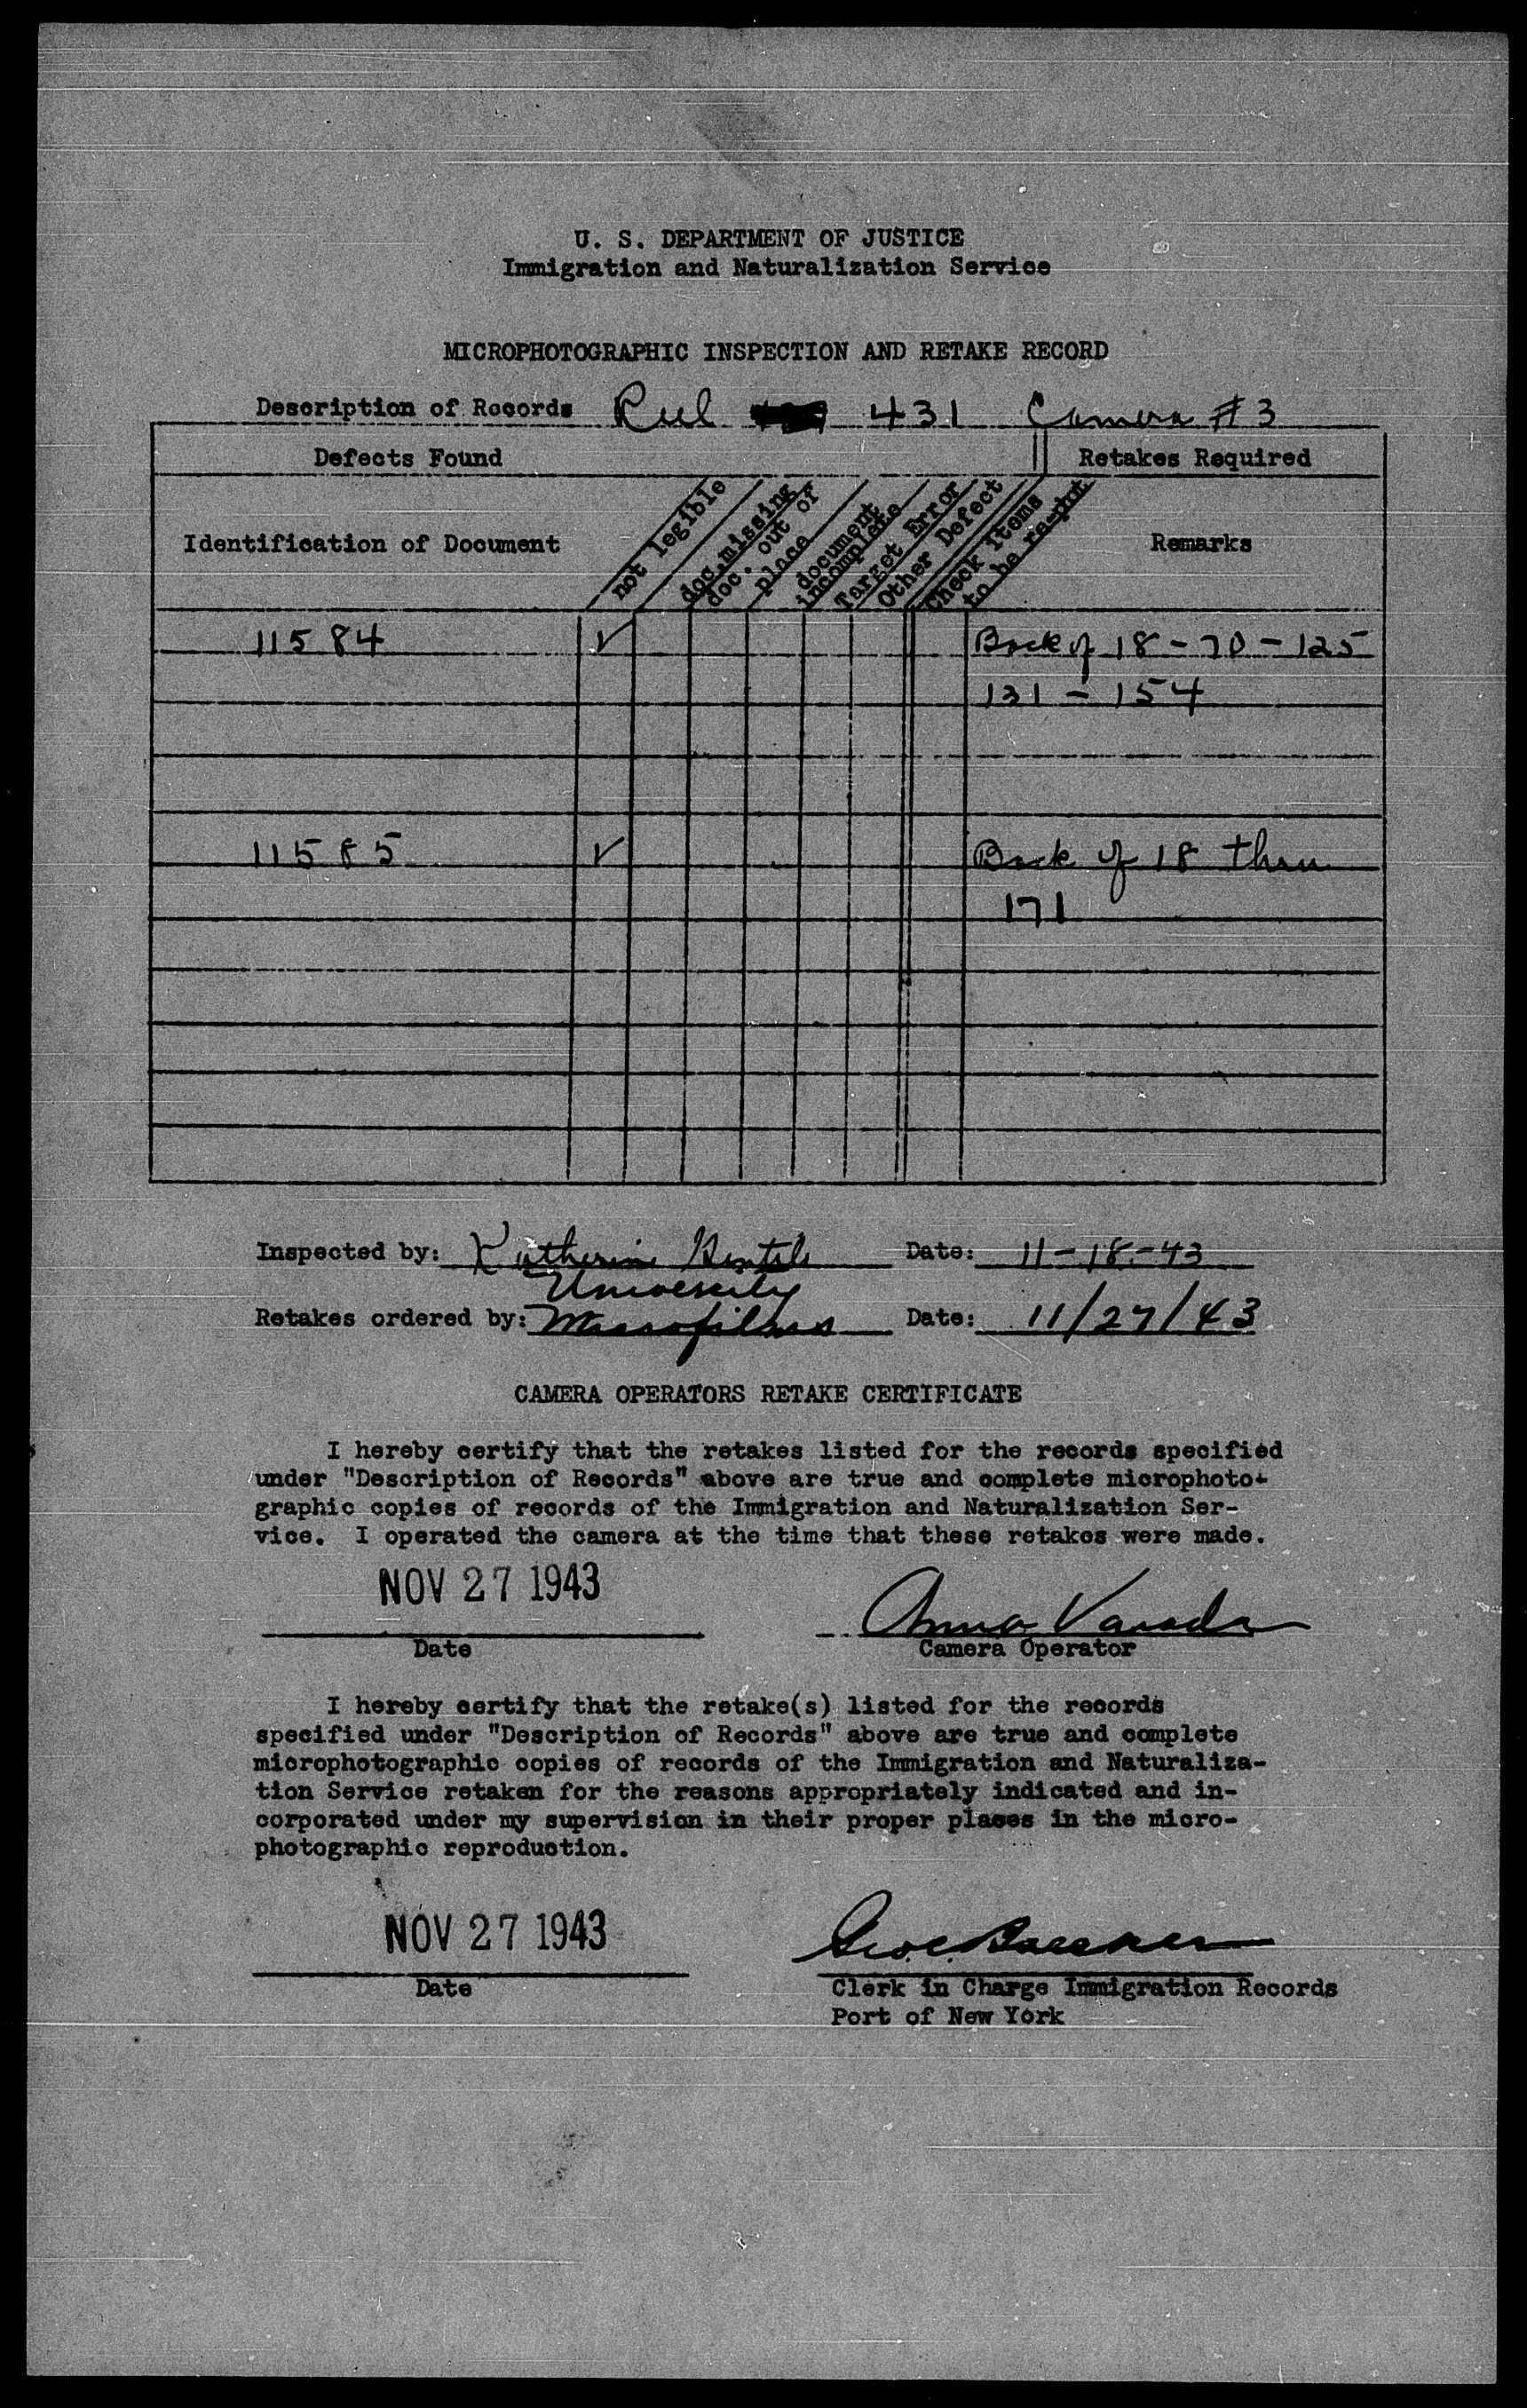 U. S. DEPARTMENT OF JUSTICE
Immigration and Naturalization Service
MICROPHOTOGRAPHIC INSPECTION AND RETAKE RECORD
Description of Records Reel 431 Camera #3
Defects Found Retakes Required
Identification of Document not legible doc. missing doc. out of place document incomplete Target Error Other Defect Check items to be re-phot Remarks
11584 V Back of 18 - 70 - 125
131 - 154
11585 V Back of 18 thru
171
Inspected by: Katherine Date: 11-18-43
University
Retakes ordered by: Microfilms Date: 11/27/43
CAMERA OPERATORS RETAKE CERTIFICATE
I hereby certify that the retakes listed for the records specified
under "Description of Records" above are true and complete microphoto-
graphic copies of records of the Immigration and Naturalization Ser-
vice. I operated the camera at the time that these retakes were made.
NOV 27 1943 Anna
Date Camera Operator
I hereby certify that the retake(s) listed for the records
specified under "Description of Records" above are true and complete
microphotographic copies of records of the Immigration and Naturaliza-
tion Service retaken for the reasons appropriately indicated and in-
corporated under my supervision in their proper places in the micro-
photographic reproduction.
NOV 27 1943
Date Clerk in Charge Immigration Records
Port of New York